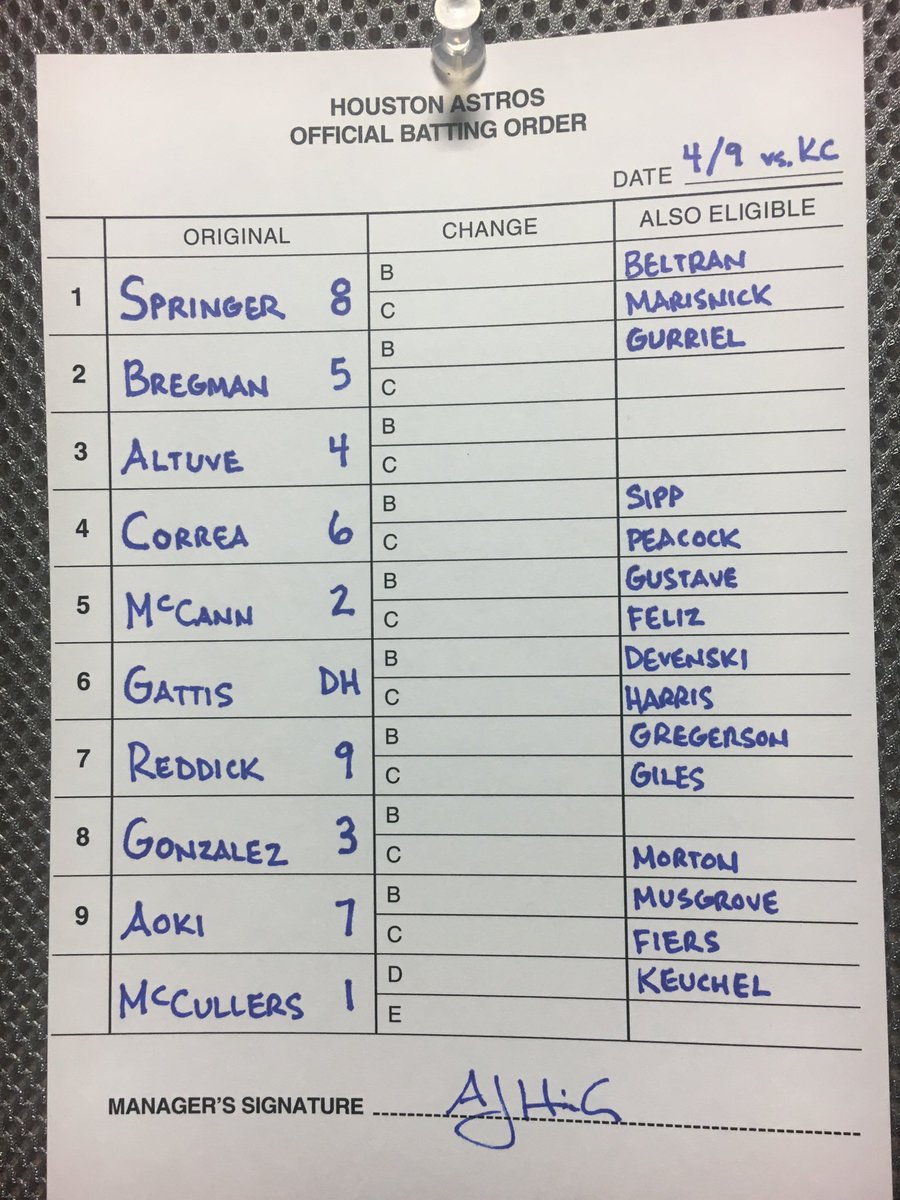 HOUSTON ASTROS
OFFICIAL BATTING ORDER
DATE 4/9 vs. KC
ORIGINAL CHANGE ALSO ELIGIBLE
1 SPRINGER 8 B BELTRAN
C MARISNICK
2 BREGMAN 5 B GURRIEL
C
3 ALTUVE 4 B
C
4 CORREA 6 B SIPP
C PEACOCK
5 McCANN 2 B GUSTAVE
C FELIZ
6 GATTIS DH B DEVENSKI
C HARRIS
7 REDDICK 9 B GREGERSON
C GILES
8 GONZALEZ 3 B
C MORTON
9 AOKI 7 B MUSGROVE
C FIERS
McCULLERS 1 D KEUCHEL
E
MANAGER'S SIGNATURE AJ Hinch